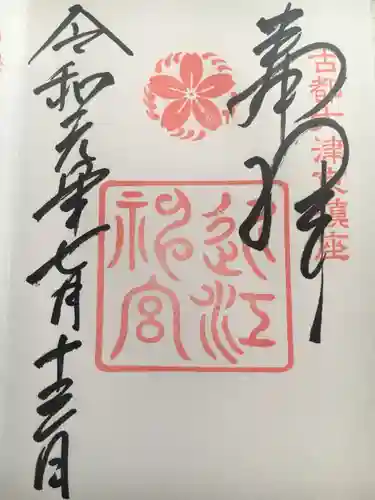 奉拝
古都大津京鎮座
近江
神宮
令和元年七月十三日